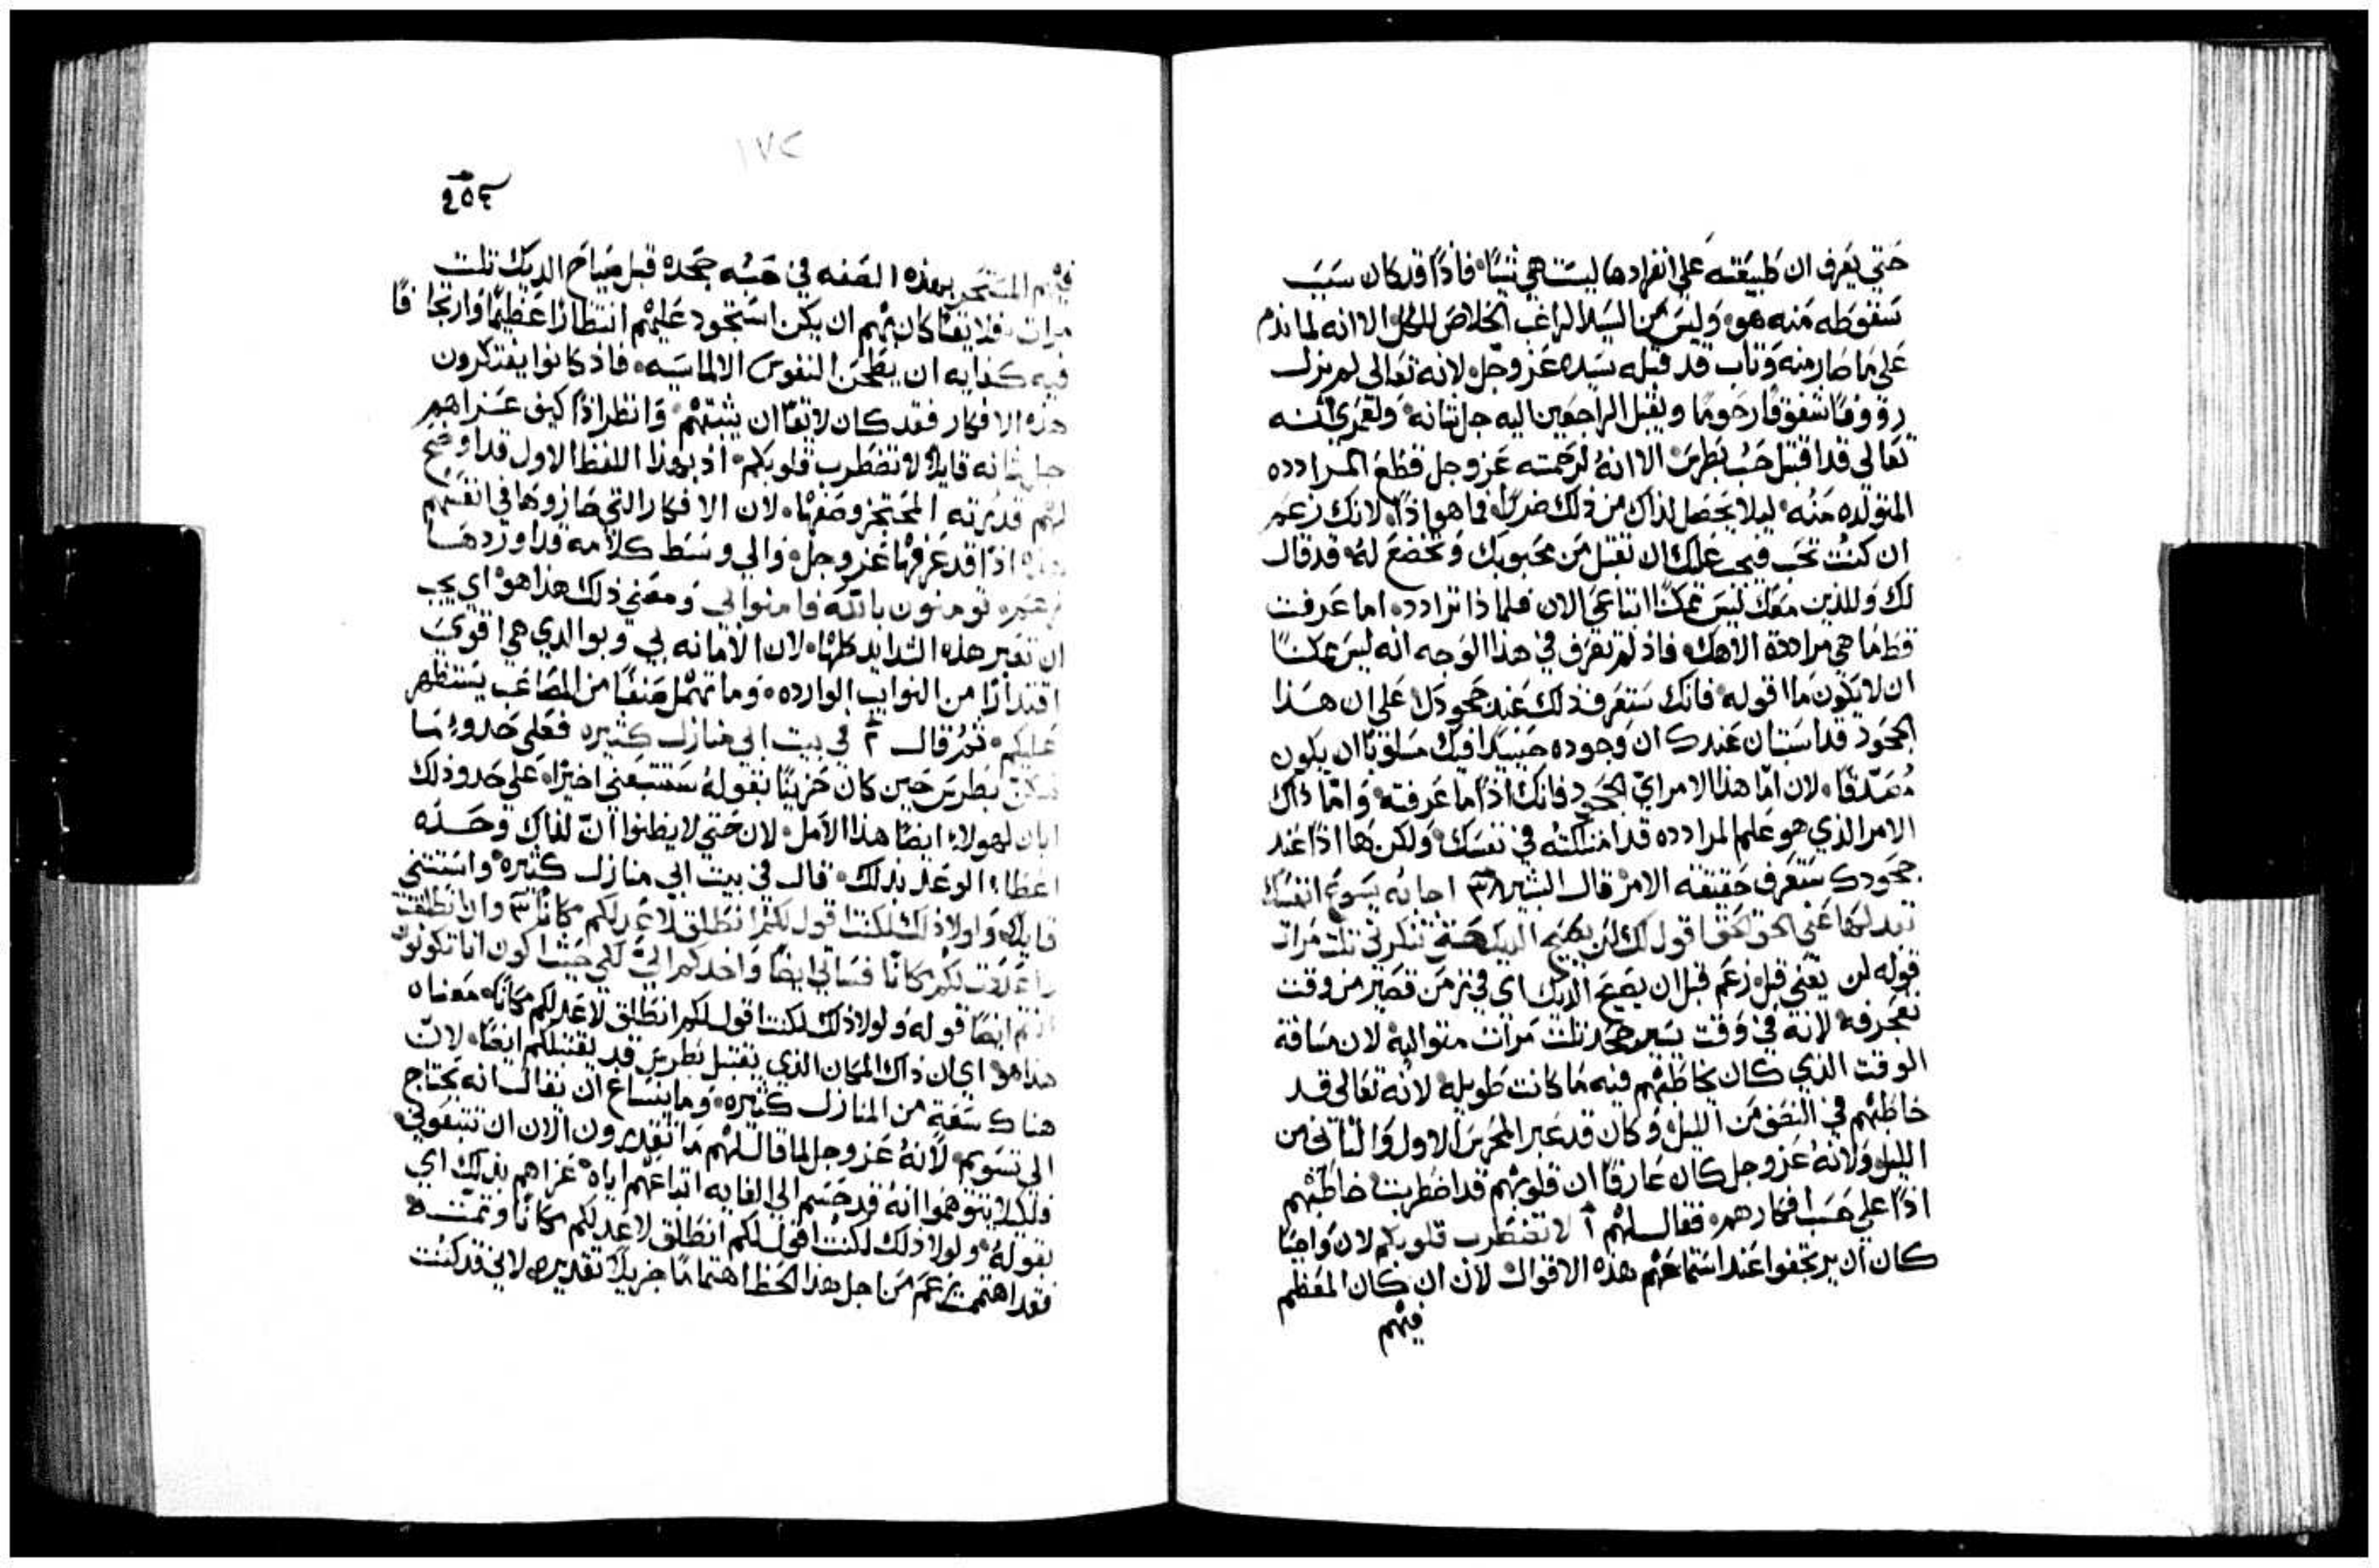 حتي يعرف ان طبيعته علي انفرادها ليست هي شيا فاذًا قد كان سبب
سقوطه منه هو وليس من السيد الراغب الخلاص للكل الا انه لما ندم
علي ما صار منه وتاب قد قبله سيده عز وجل لانه تعالي لم يزل
رووفًا شفوقًا رحومًا ويقبل الراجعين اليه جل شانه ولعمري انه
تعالي قد اقتبل حب بطرس الا انه لرحمته عز وجل قطع المرادده
المتولده منه ليلا يحصل لذاك من ذلك ضررًا فما هو اذًا لانك زعم
ان كنت تحب فيجب عليك ان تقبل من محبوبك وتخضع له قد قال
لك وللذين معك ليس ممكنًا اتباعي الان فلماذا ترادده اما عرفت
قط ما هي مراددة الاهك فاذ لم تعرف في هذا الوجه انه ليس ممكنًا
ان لا يكون ما اقوله فانك ستعرف ذلك عند جحودك علي ان هذا
الجحود قد استبان عندك ان وجوده حينيذ فيك ان يكون
مصدقًا لان اما هذا الامر اي الجحود فانك اذًا ما عرفته واما ذاك
الامر الذي هو علم المرادده قد امتلكته في نفسك ولكن ها اذًا عند
جحودك ستعرف حقيقة الامر قال البشير ٣٨ اجابه يسوع انفسك
تبدلها عني الحق الحق اقول لك لن يصيح الديك حتي تنكرني ثلث مرات
قوله لن يعني قبل زعم قبل ان يصيح الديك اي في زمن قصير من وقت
تعجرفه لانه في وقت يسير جحد ثلث مرات متواليه لان مسافة
الوقت الذي كان يخاطبهم فيه ما كانت طويله لانه تعالي قد
خاطبهم في النصف من الليل وكان قد عبر المحرس الاول والثاني من
الليل ولانه عز وجل كان عارفًا ان قلوبهم قد اضطربت خاطبهم
اذًا علي حسب افكارهم فقال لهم ١ لا تضطرب قلوبكم لان واجبًا
كان ان يرتجفوا عند استماعهم هذه الاقوال لان ان كان المعظم
فيهم
١٧٢
فيهم المستحر بهذه الصفه في حبه جحده قبل صياح الديك ثلث
مرات فلايقًا كان بهم ان يكن استحوذ عليهم انتظارًا عظيمًا وارتجافًا
فيه كفايه ان يطحن النفوس الالماسيه فاذ كانوا يفتكرون
هذه الافكار فقد كان لايقًا ان يثبتهم وانظر اذًا كيف عزاهم
جل شانه قايلًا لا تضطرب قلوبكم اذ بهذا اللفظ الاول قد اوضح
لهم قدرته لان الافكار التي حازوها في انفسهم
هذه اذًا قد عرفها عز وجل والي وسط كلامه قد اوردها
تومنون بالله فامنوا بي ومعني ذلك هذا هو اي يجب
ان تعبر هذه الشدايد كلها لان الامانه بي وبوالدي هي اقوي
اقتدارًا من النوايب الوارده وما تهمل صنفًا من المصاعب يستظهر
عليكم ثم قال ٢ في بيت ابي منازل كثيره فعلي حذو ما
سكن بطرس حين كان حزينًا بقوله ستتبعني اخيرًا علي حذو ذلك
ابان لهولاء ايضًا هذا الامل لان حتي لا يظنوا ان لذاك وحده
اعطاء الوعد بذلك قال في بيت ابي منازل كثيره واستثني
قايلًا ولولا ذلك لكنت اقول لكم انطلق لاعد لكم مكانًا ٣ وان انطلقت
واعددت لكم مكانًا فساتي ايضًا واخذكم الي لكي حيث اكون انا تكونون
انتم ايضًا قوله ولولا ذلك لكنت اقول لكم انطلق لاعد لكم مكانًا معناه
هذا هو اي ان ذاك المكان الذي يقتبل بطرس قد يقتبلكم ايضًا لان
هناك سعة من المنازل كثيره وما ينساغ ان يقال انه يحتاج
الي تسويم لانه عز وجل لما قال لهم ما تقدرون الان ان تتبعوني
فلكيلا يتوهموا انه قد حسم الي الغايه اتباعهم اياه عزاهم بذلك اي
بقوله ولولا ذلك لكنت اقول لكم انطلق لاعد لكم مكانًا وتمته
فقد اهتممت زعم من اجل هذا الحظ اهتمامًا جزيلًا تقديره لاني قد كنت